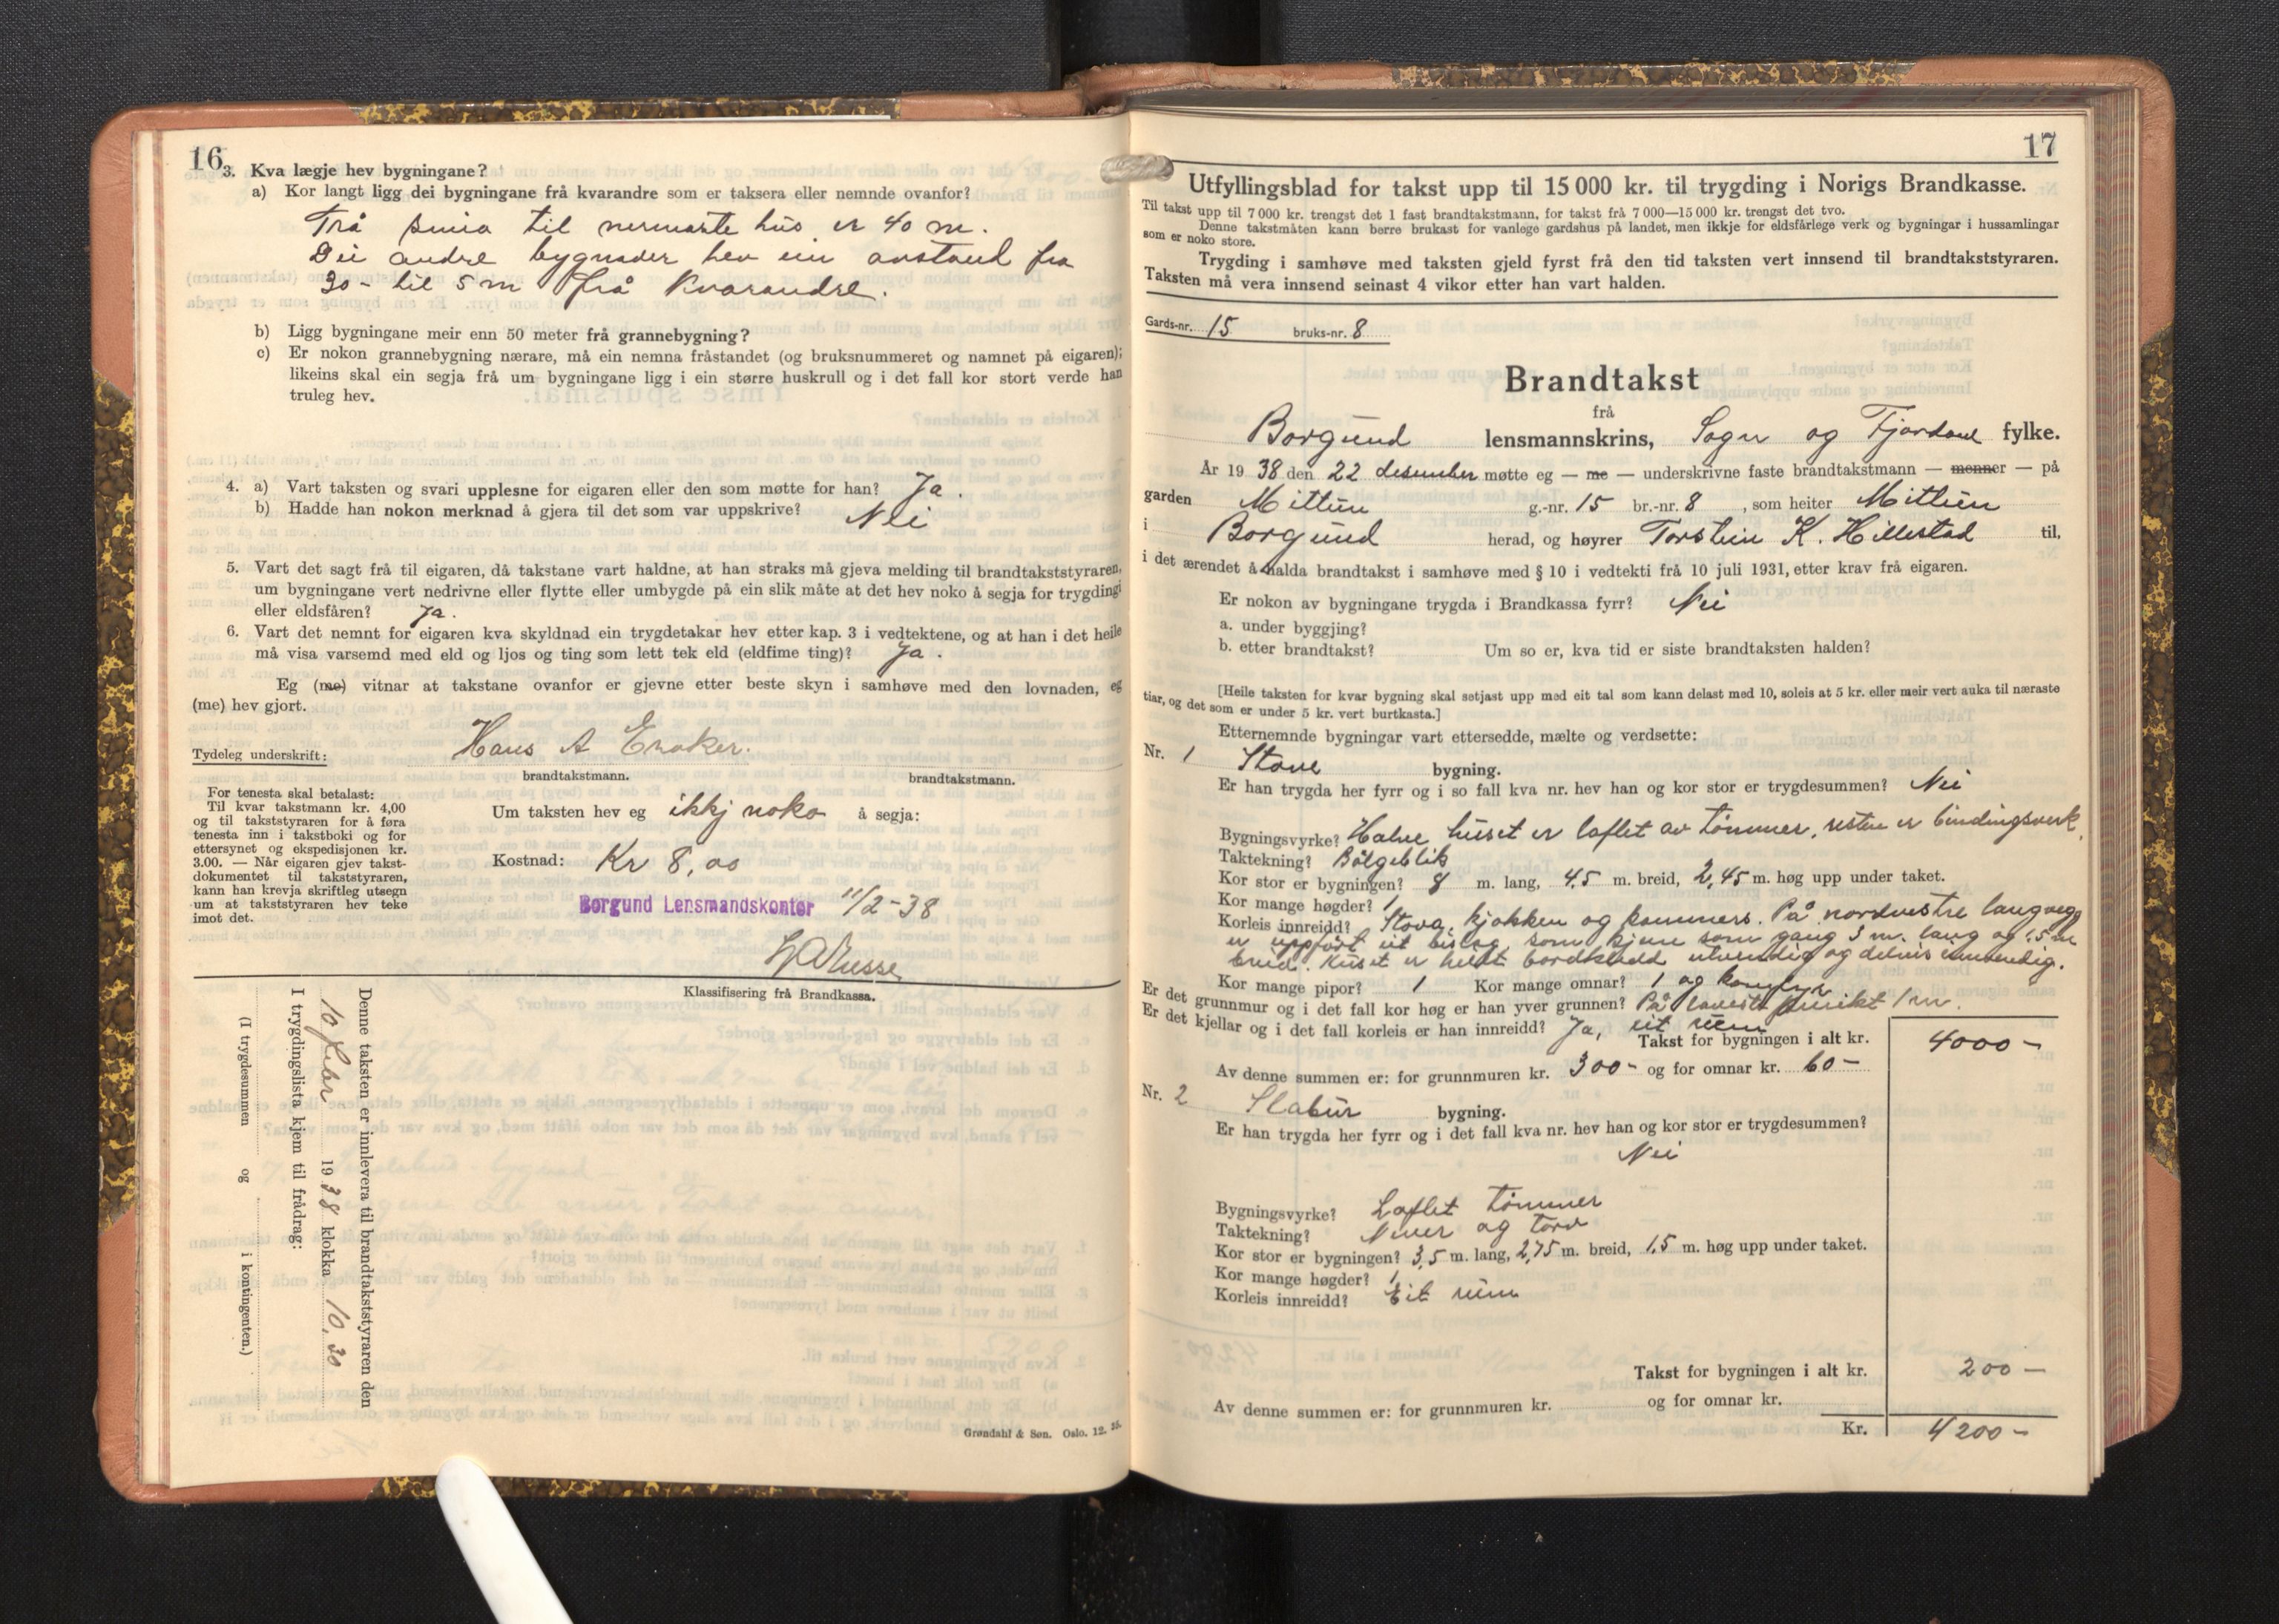 16
3. Kva lægje hev bygningane?
a) Kor langt ligg dei bygningane frå kvarandre som er taksera eller nemnde ovanfor?
Frå smia til nermaste hus er 40 m.
Dei andre bygnader hev ein avstand fra
30- til 5 m frå kvarandre.
b) Ligg bygningane meir enn 50 meter frå grannebygning?
c) Er nokon grannebygning nærare, må ein nemna fråstandet (og bruksnummeret og namnet på eigaren);
likeins skal ein segja frå um bygningane ligg i ein større huskrull og i det fall kor stort verde han
truleg hev.
4. a) Vart taksten og svari upplesne for eigaren eller den som møtte for han? Ja.
b) Hadde han nokon merknad å gjera til det som var uppskrive? Nei
5. Vart det sagt frå til eigaren, då takstane vart haldne, at han straks må gjeva melding til brandtakststyraren,
um bygningane vert nedrivne eller flytte eller umbygde på ein slik måte at det hev noko å segja for trygdingi
eller eldsfåren? Ja.
6. Vart det nemnt for eigaren kva skyldnad ein trygdetakar hev etter kap. 3 i vedtektene, og at han i det heile
må visa varsemd med eld og ljos og ting som lett tek eld (eldfime ting)? Ja.
Eg (me) vitnar at takstane ovanfor er gjevne etter beste skyn i samhøve med den lovnaden, eg
(me) hev gjort.
Tydeleg underskrift: Hans A
brandtakstmann. brandtakstmann.
For tenesta skal betalast:
Til kvar takstmann kr. 4,00
og til takststyraren for å føra
tenesta inn i takstboki og for
ettersynet og ekspedisjonen kr.
3.00. — Når eigaren gjev takst-
dokumentet til takststyraren,
kann han krevja skriftleg utsegn
um at takststyraren hev teke
imot det.
Um taksten hev eg ikkj noko å segja:
Kostnad: Kr 8,00
Borgund Lensmandskontor 11/2-38
Klassifisering frå Brandkassa.
Denne taksten er innlevera til brandtakststyraren den
10 febr 1938 klokka 10,30
I trygdingslista kjem til frådrag:
(I trygdesummen og i kontingenten.)
Grøndahl & Søn. Oslo. 12. 35.
17
Utfyllingsblad for takst upp til 15 000 kr. til trygding i Norigs Brandkasse.
Til takst upp til 7 000 kr. trengst det 1 fast brandtakstmann, for takst frå 7 000—15 000 kr. trengst det tvo.
Denne takstmåten kann berre brukast for vanlege gardshus på landet, men ikkje for eldsfårlege verk og bygningar i hussamlingar
som er noko store.
Trygding i samhøve med taksten gjeld fyrst frå den tid taksten vert innsend til brandtakststyraren.
Taksten må vera innsend seinast 4 vikor etter han vart halden.
Gards-nr. 15 bruks-nr. 8
Brandtakst
frå
Borgund lensmannskrins, Sogn og Fjordane fylke.
År 1938 den 22 desember møtte eg — me — underskrivne faste brandtakstmann — menner — på
garden Mittun g.-nr. 15 br.-nr. 8, som heiter Mittun
i Borgund herad, og høyrer Torstein K. Hillestad til,
i det ærendet å halda brandtakst i samhøve med § 10 i vedtekti frå 10 juli 1931, etter krav frå eigaren.
Er nokon av bygningane trygda i Brandkassa fyrr? Nei
a. under byggjing?
b. etter brandtakst? Um so er, kva tid er siste brandtaksten halden?
[Heile taksten for kvar bygning skal setjast upp med eit tal som kann delast med 10, soleis at 5 kr. eller meir vert auka til næraste
tiar, og det som er under 5 kr. vert burtkasta.]
Etternemnde bygningar vart ettersedde, mælte og verdsette:
Nr. 1 Stove bygning.
Er han trygda her fyrr og i so fall kva nr. hev han og kor stor er trygdesummen? Nei
Bygningsvyrke? Halve huset er laftet av tømmer, resten er bindingsverk.
Taktekning? Bølgeblik
Kor stor er bygningen? 8 m. lang, 4,5 m. breid, 2,45 m. høg upp under taket.
Kor mange høgder? 1
Korleis innreidd? Stova, kjøkken og kammers. På nordvestre langvegg
er uppført eit bislag, som tjene som gang 3 m. lang og 1,5 m
breid. Huset er heilt bordkledd utvendig og delvis innvendig.
Kor mange pipor? 1 Kor mange omnar? 1 og komfyr
Er det grunnmur og i det fall kor høg er han yver grunnen? På laveste punkt 1 m.
Er det kjellar og i det fall korleis er han innreidd? Ja, eit rum
Takst for bygningen i alt kr. 4000-
Av denne summen er: for grunnmuren kr. 300- og for omnar kr. 60-
Nr. 2 Stabur bygning.
Er han trygda her fyrr og i det fall kva nr. hev han og kor stor er trygdesummen?
Nei
Bygningsvyrke? Laftet tømmer
Taktekning? Never og torv
Kor stor er bygningen? 3,5 m. lang, 2,75 m. breid, 1,5 m. høg upp under taket.
Kor mange høgder? 1
Korleis innreidd? Eit rum
Takst for bygningen i alt kr. 200-
Av denne summen er: for grunnmuren kr. og for omnar kr.
Kr. 4200-